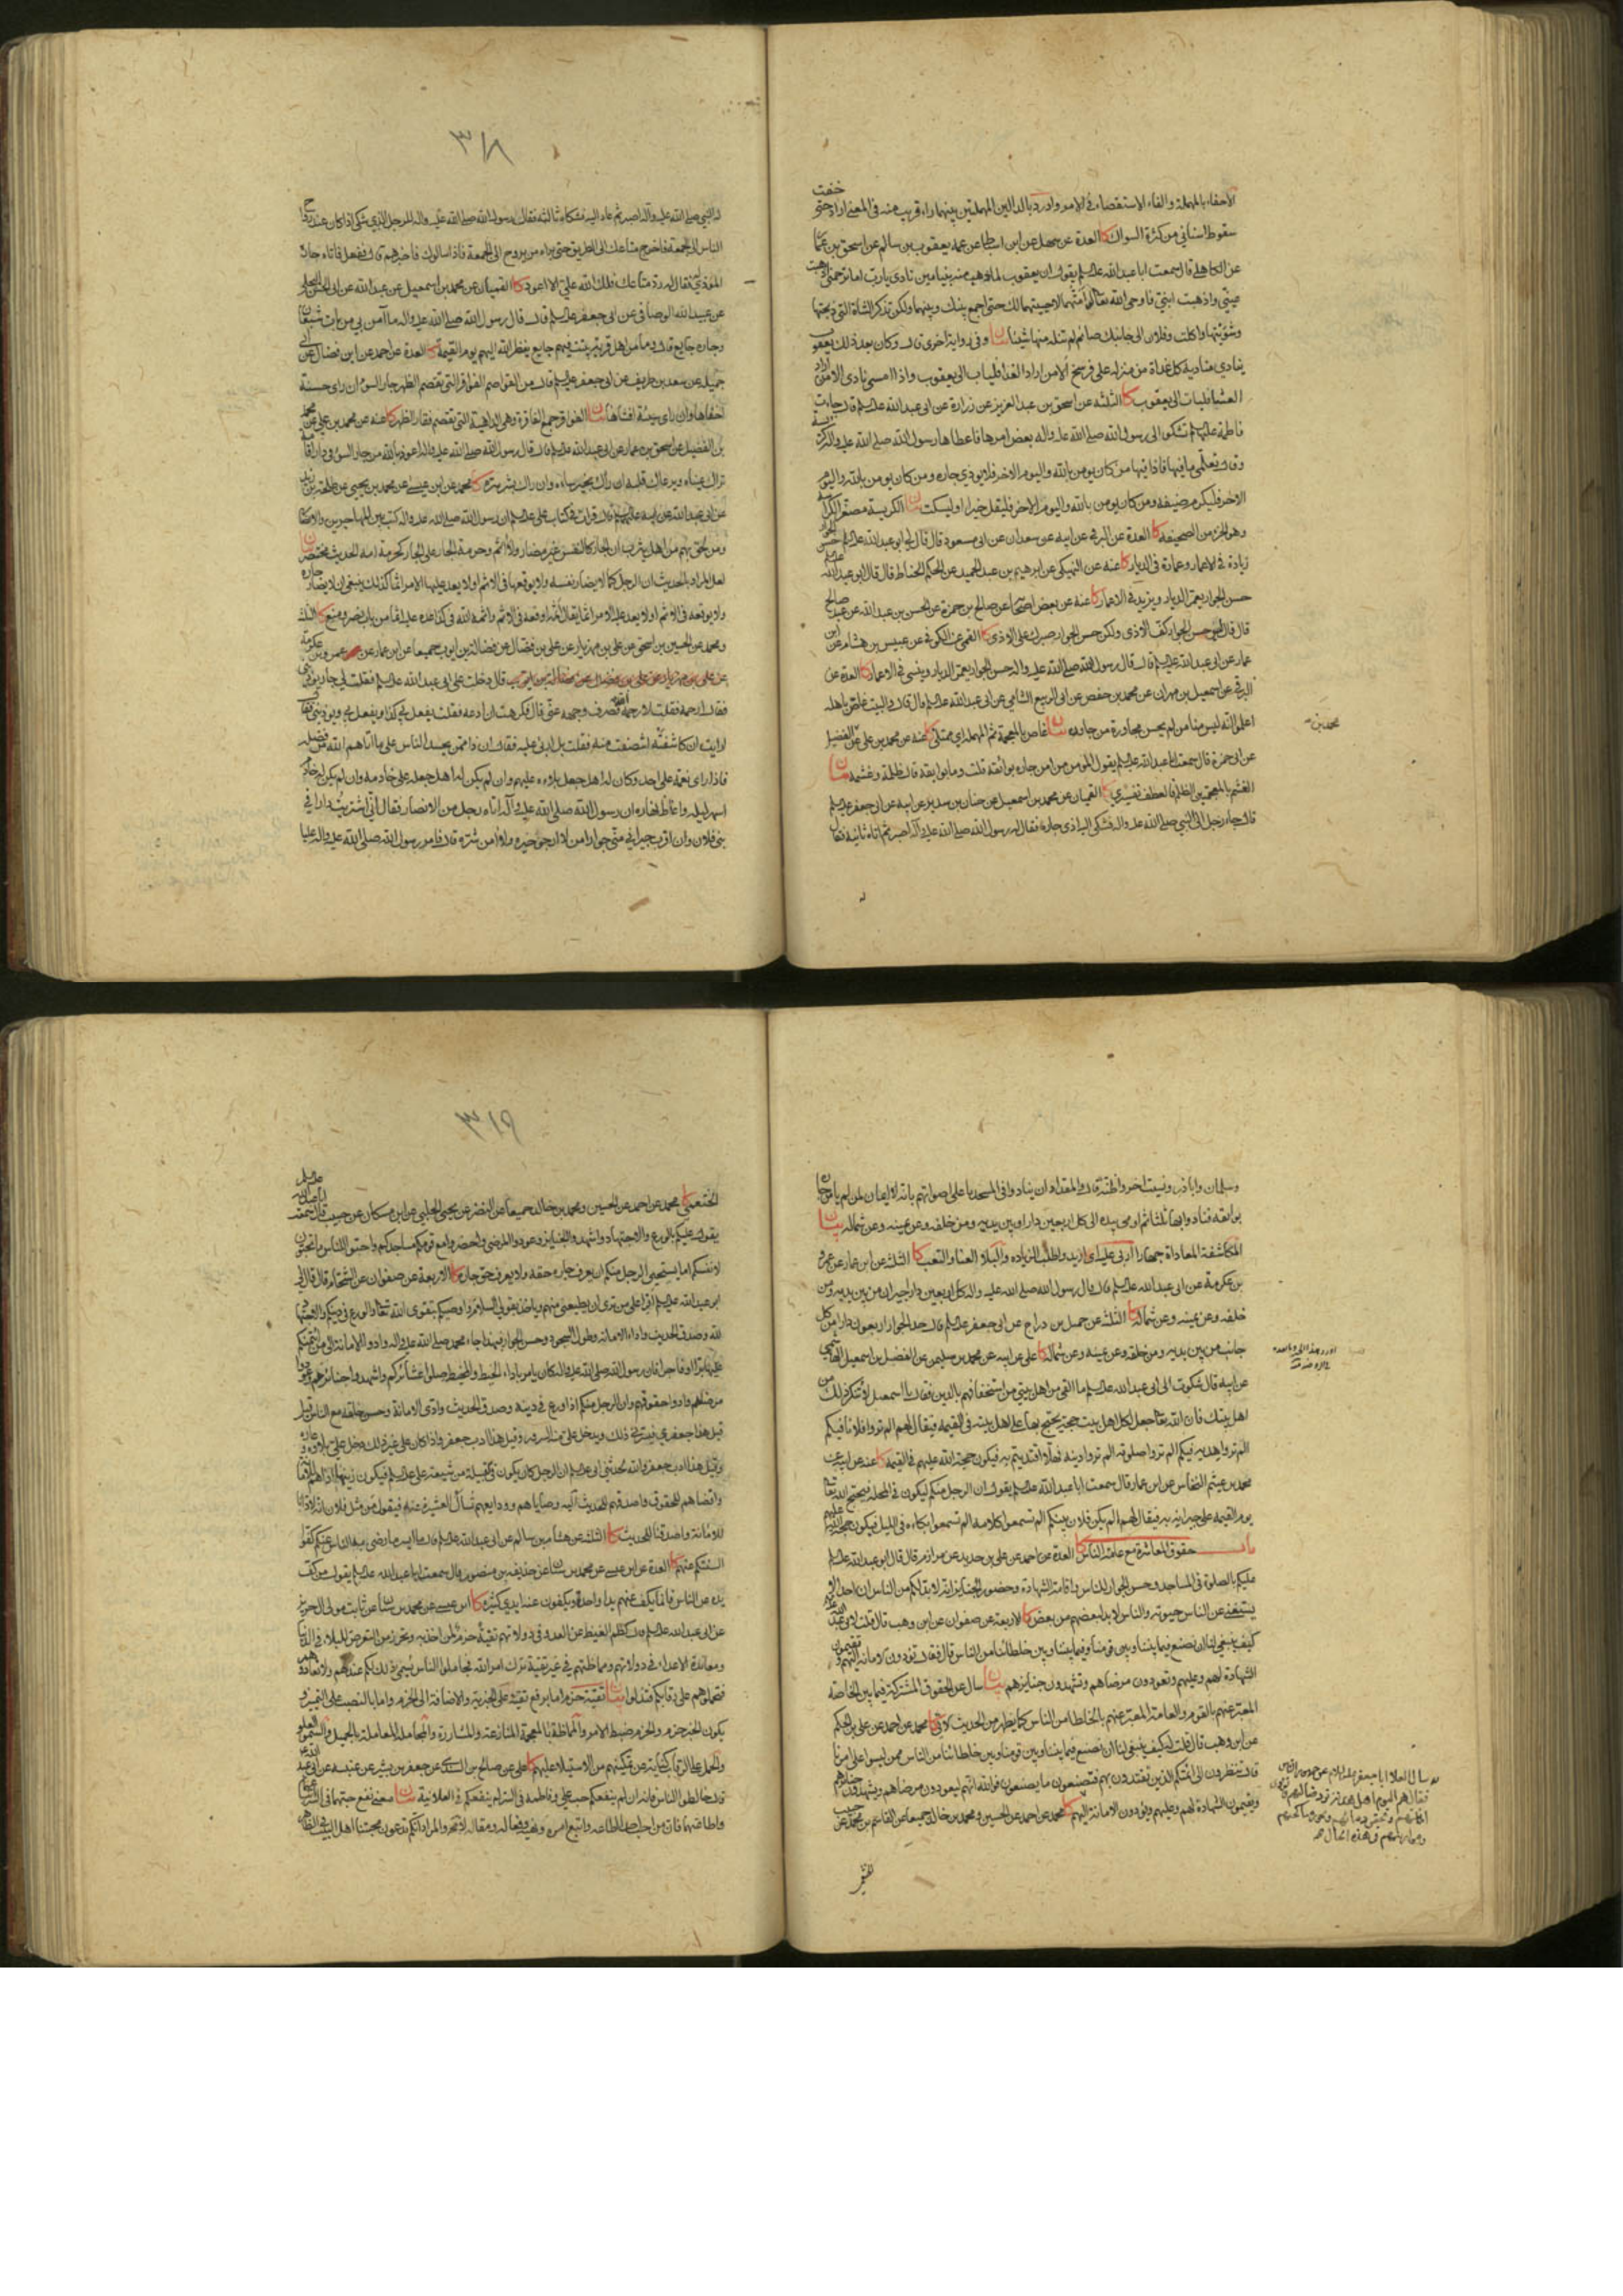 الاحفاء بالمهملة والفاء الاستقصاء في الامر وادرد بالدالين المهملتين بينهما راء قريب منه في المعنى اراد حتى خفت
سقوط اسناني من كثرة السواك كا العدة عن سهل عن ابن اسباط عن عمه يعقوب بن سالم عن اسحق بن عمار
عن الكاهلي قال سمعت ابا عبدالله عليه السلم يقول ان يعقوب لما ذهب منه بنيامين نادى يا رب اما ترحمني اذهبت
عيني واذهبت ابني فاوحى الله تعالى لو امتهما لاحييتهما لك حتى اجمع بينك وبينهما ولكن تذكر الشاة التي ذبحتها
وشويتها واكلت وفلان الى جانبك صائم لم تنله منها شيئا وفي رواية اخرى قال وكان بعد ذلك يعقوب
ينادي مناديه كل غداة من منزله على فرسخ الا من اراد الغداء فليات الى يعقوب واذا امسى نادى الا من اراد
العشاء فليات الى يعقوب كا الثلثة عن اسحق بن عبد العزيز عن زرارة عن ابي عبدالله عليه السلم قال جاءت
فاطمة عليها السلم تشكو الى رسول الله صلى الله عليه واله بعض امرها فاعطاها رسول الله صلى الله عليه واله كريسة
وقال تعلمي ما فيها فاذا فيها من كان يومن بالله واليوم الاخر فلا يوذي جاره ومن كان يومن بالله واليوم
الاخر فليكرم ضيفه ومن كان يومن بالله واليوم الاخر فليقل خيرا او ليسكت بيان الكريسة مصغر الكراسة
وهو الجزء من الصحيفة كا العدة عن البرقي عن ابيه عن سعدان عن ابي مسعود قال قال لي ابو عبدالله عليه السلم حسن الجوار
زيادة في الاعمار وعمارة في الديار كا عنه عن النهيكي عن ابرهيم بن عبد الحميد عن الحكم الخناط قال قال ابو عبدالله عليه السلم
حسن الجوار يعمر الديار ويزيد في الاعمار كا عنه عن بعض اصحابنا عن صالح بن حمزة عن الحسن بن عبدالله عن عبد صالح
قال قال ليس حسن الجوار كف الاذى ولكن حسن الجوار صبرك على الاذى كا القمي عن الكوفي عن عبيس بن هشام عن ابن
عمار عن ابي عبدالله عليه السلم قال قال رسول الله صلى الله عليه واله حسن الجوار يعمر الديار وينسئ في الاعمار كا العدة عن
البرقي عن اسمعيل بن مهران عن محمد بن حفص عن ابي الربيع الشامي عن ابي عبدالله عليه السلم قال قال والبيت غاص باهله
اعلموا انه ليس منا من لم يحسن مجاورة من جاوره بيان غاص بالمعجمة ثم المهملة اي ممتلئ كا عنه عن محمد بن علي عن محمد بن الفضيل
عن ابي حمزة قال سمعت ابا عبدالله عليه السلم يقول المومن من امن جاره بوائقه قلت وما بوائقه قال ظلمه وغشمه بيان
الغشم بالمعجمتين الظلم فالعطف تفسيري كا القميان عن محمد بن اسمعيل عن حنان بن سدير عن ابيه عن ابي جعفر عليه السلم
قال جاء رجل الى النبي صلى الله عليه واله فشكى اليه اذى جاره فقال له رسول الله صلى الله عليه واله اصبر ثم اتاه ثانية فقال
محمد بن
٣١٨
له النبي صلى الله عليه واله اصبر ثم عاد اليه فشكاه ثالثة فقال رسول الله صلى الله عليه واله للرجل الذي شكى اذا كان عند رواح
الناس الى الجمعة فاخرج متاعك الى الطريق حتى يراه من يروح الى الجمعة فاذا سالوك فاخبرهم قال ففعل فاتاه جاره
الموذي له فقال له رد متاعك فلك الله علي الا اعود كا القميان عن محمد بن اسمعيل عن عبدالله عن ابي الحسن البجلي
عن عبيد الله الوصافي عن ابي جعفر عليه السلم قال قال رسول الله صلى الله عليه واله ما آمن بي من بات شبعان
وجاره جايع قال وما من اهل قرية يبيت فيهم جايع ينظر الله اليهم يوم القيمة كا العدة عن احمد عن ابن فضال عن ابي
جميلة عن سعد بن طريف عن ابي جعفر عليه السلم قال من القواصم الفواقر التي تقصم الظهر جار السوء ان راى حسنة
اخفاها وان راى سيئة افشاها بيان الفواقر جمع الفاقرة وهي الداهية التي تقصم فقار الظهر كا عنه عن محمد بن علي عن محمد
بن الفضيل عن اسحق بن عمار عن ابي عبدالله عليه السلم قال قال رسول الله صلى الله عليه واله اعوذ بالله من جار السوء في دار اقامة
تراك عيناه ويرعاك قلبه ان راك بخير ساءه وان راك بشر سره كا محمد عن ابن عيسى عن محمد بن يحيى عن طلحة بن زيد
عن ابي عبدالله عن ابيه عليهما السلم قال قرات في كتاب علي عليه السلم ان رسول الله صلى الله عليه واله كتب بين المهاجرين والانصار
ومن لحق بهم من اهل يثرب ان الجار كالنفس غير مضار ولا آثم وحرمة الجار على الجار كحرمة امه الحديث مختصر بيان
لعل المراد بالحديث ان الرجل كما لا يضار نفسه ولا يوقعها في الاثم او لا يعد عليها الامر اثما كذلك ينبغي ان لا يضار جاره
ولا يوقعه في الاثم او لا يعد عليه الامر اثما يقال اثمه اوقعه في الاثم واثمه الله في كذا عده عليه اثما من باب نصر ومنع كا الثلثة
ومحمد عن الحسين بن اسحق عن علي بن مهزيار عن علي بن فضال عن فضالة بن ايوب جميعا عن ابن عمار عن عمرو بن عكرمة
قال دخلت على ابي عبدالله عليه السلم فقلت لي جار يوذيني
فقال ارحمه فقلت لا رحمه الله فصرف وجهه عني قال فكرهت ان ادعه فقلت يفعل بي كذا ويفعل بي ويوذيني فقال
ارايت ان كاشفته انتصفت منه فقلت بلى اربي عليه فقال ان ذا ممن يحسد الناس على ما اتاهم الله من فضله
فاذا راى نعمة على احد وكان له اهل جعل بلاءه عليهم وان لم يكن له اهل جعله على خادمه وان لم يكن له خادم
اسهر ليله واغاظ نهاره ان رسول الله صلى الله عليه واله اتاه رجل من الانصار فقال اني اشتريت دارا في
بني فلان وان اقرب جيراني مني جوارا من لا ارجو خيره ولا امن شره قال فامر رسول الله صلى الله عليه واله عليا
وسلمان واباذر ونسيت اخر واظنه قال والمقداد ان ينادوا في المسجد باعلى اصواتهم بانه لا ايمان لمن لم يامن جاره
بوائقه فنادوا بها ثلثا ثم اومى بيده الى كل اربعين دارا من بين يديه ومن خلفه وعن يمينه وعن شماله بيان
المكاشفة المعاداة جهارا اربى عليه اي ازيد واطلب الزيادة والبلاء العناء والتعب كا الثلثة عن ابن عمار عن عمرو
بن عكرمة عن ابي عبدالله عليه السلم قال قال رسول الله صلى الله عليه واله كل اربعين دارا جيران من بين يديه ومن
خلفه وعن يمينه وعن شماله كا الثلثة عن جميل بن دراج عن ابي جعفر عليه السلم قال حد الجوار اربعون دارا من كل
جانب من بين يديه ومن خلفه وعن يمينه وعن شماله كا علي عن ابيه عن محمد بن سليمن عن الفضيل بن اسمعيل الهاشمي
عن ابيه قال شكوت الى ابي عبدالله عليه السلم ما القى من اهل بيتي من استخفافهم بالدين فقال يا اسمعيل لا تنكر ذلك من
اهل بيتك فان الله تعالى جعل لكل اهل بيت حجة يحتج بها على اهل بيته في القيمة فيقال لهم الم تروا فلانا فيكم
الم تروا هديه فيكم الم تروا صلوته الم تروا دينه فهلا اقتديتم به فيكون حجة الله عليهم في القيمة كا عنه عن ابيه عن
محمد بن عيثم النخاس عن ابن عمار قال سمعت ابا عبدالله عليه السلم يقول ان الرجل منكم ليكون في المحلة فيحتج الله تعالى
يوم القيمة على جيرانه به فيقال لهم الم يكن فلان بينكم الم تسمعوا كلامه الم تسمعوا بكاءه في الليل فيكون حجة الله عليهم
باب حقوق المعاشرة مع عامة الناس كا العدة عن احمد عن علي بن حديد عن مرازم قال قال ابو عبدالله عليه السلم
عليكم بالصلوة في المساجد وحسن الجوار للناس واقامة الشهادة وحضور الجنايز انه لا بد لكم من الناس ان احدا لا
يستغني عن الناس حيوته والناس لا بد لبعضهم من بعض كا الاربعة عن صفوان عن ابن وهب قال قلت لابي عبدالله عليه السلم
كيف ينبغي لنا ان نصنع فيما بيننا وبين قومنا وفيما بيننا وبين خلطائنا من الناس قال فقال تودون الامانة اليهم وتقيمون
الشهادة لهم وعليهم وتعودون مرضاهم وتشهدون جنايزهم بيان سال عن الحقوق المشتركة فيما بين الخاصة
المعبر عنهم بالقوم والعامة المعبر عنهم بالخلطاء من الناس كما يظهر من الحديث الآتي كا محمد عن احمد عن علي بن الحكم
عن ابن وهب قال قلت له كيف ينبغي لنا ان نصنع فيما بيننا وبين قومنا وبين خلطائنا من الناس ممن ليسوا على امرنا
قال تنظرون الى ائمتكم الذين تقتدون بهم فتصنعون ما يصنعون فوالله انهم ليعودون مرضاهم ويشهدون جنايزهم
ويقيمون الشهادة لهم وعليهم ويودون الامانة اليهم كا محمد عن احمد عن الحسين ومحمد بن خالد جميعا عن القاسم بن محمد عن حبيب
الخثعمي
٣١٩
الخثعمي كا محمد عن احمد عن الحسين ومحمد بن خالد جميعا عن النضر عن يحيى الحلبي عن ابن مسكان عن حبيب قال سمعت ابا عبدالله عليه السلم
يقول عليكم بالورع والاجتهاد واشهدوا الجنايز وعودوا المرضى واحضروا مع قومكم مساجدكم واحبوا للناس ما تحبون
لانفسكم اما يستحيي الرجل منكم ان يعرف جاره حقه ولا يعرف حق جاره كا الاربعة عن صفوان عن الشحام قال قال لي
ابو عبدالله عليه السلم اقرا على من ترى ان يطيعني منهم وياخذ بقولي السلم واوصيكم بتقوى الله تعالى والورع في دينكم والاجتهاد
لله وصدق الحديث واداء الامانة وطول السجود وحسن الجوار فبهذا جاء محمد صلى الله عليه واله وادوا الامانة الى من ائتمنكم
عليها برا او فاجرا فان رسول الله صلى الله عليه واله كان يامر باداء الخيط والمخيط صلوا عشائركم واشهدوا جنائزهم وعودوا
مرضاهم وادوا حقوقهم وان الرجل منكم اذا ورع في دينه وصدق الحديث وادى الامانة وحسن خلقه مع الناس قيل
هذا جعفري فيسرني ذلك ويدخل علي منه السرور وقيل هذا ادب جعفر واذا كان على غير ذلك دخل علي بلاؤه وعاره
وقيل هذا ادب جعفر والله لحدثني ابي عليه السلم ان الرجل كان يكون في القبيلة من شيعة علي عليه السلم فيكون زينها اداهم للامانة
واقضاهم للحقوق واصدقهم للحديث اليه وصاياهم وودايعهم تسال العشيرة عنه فيقول من مثل فلان انه لآدانا
للامانة واصدقنا للحديث كا الثلثة عن هشام بن سالم عن ابي عبدالله عليه السلم
السنتكم عنهم كا العدة عن ابن عيسى عن محمد بن سنان عن حذيفة بن منصور قال سمعت ابا عبدالله عليه السلم يقول من كف
يده عن الناس فانما يكف عنهم يدا واحدة ويكفون عنه ايدي كثيرة كا ابن عيسى عن محمد بن سنان عن ثابت مولى آل حريز
عن ابي عبدالله عليه السلم قال كظم الغيظ عن العدو في دولاتهم تقية حزم لمن اخذ به وتحرز من التعرض للبلاء في الدنيا
ومعاندة الاعداء في دولاتهم ومماظتهم في غير تقية ترك امر الله فجاملوا الناس يسمن ذلك لكم عندهم ولا تعادوهم
فتحملوهم على رقابكم فتذلوا بيان تقية حزم اما برفع تقية على الخبرية والاضافة الى الحزم واما بالنصب على التمييز و
يكون الخبر حزم والحزم ضبط الامر والمماظة بالمعجمة المنازعة والمشارة والمجاملة المعاملة بالجميل والسمن العلو
والحمل على الرقاب كناية عن تمكينهم من الاستيلاء عليهم كا علي عن صالح بن السندي عن جعفر بن بشير عن عنبسة عن ابي عبدالله عليه السلم
قال خالطوا الناس فانه ان لم ينفعكم حب علي وفاطمة في السر لم ينفعكم في العلانية بيان معنى نفع حبهما في السر